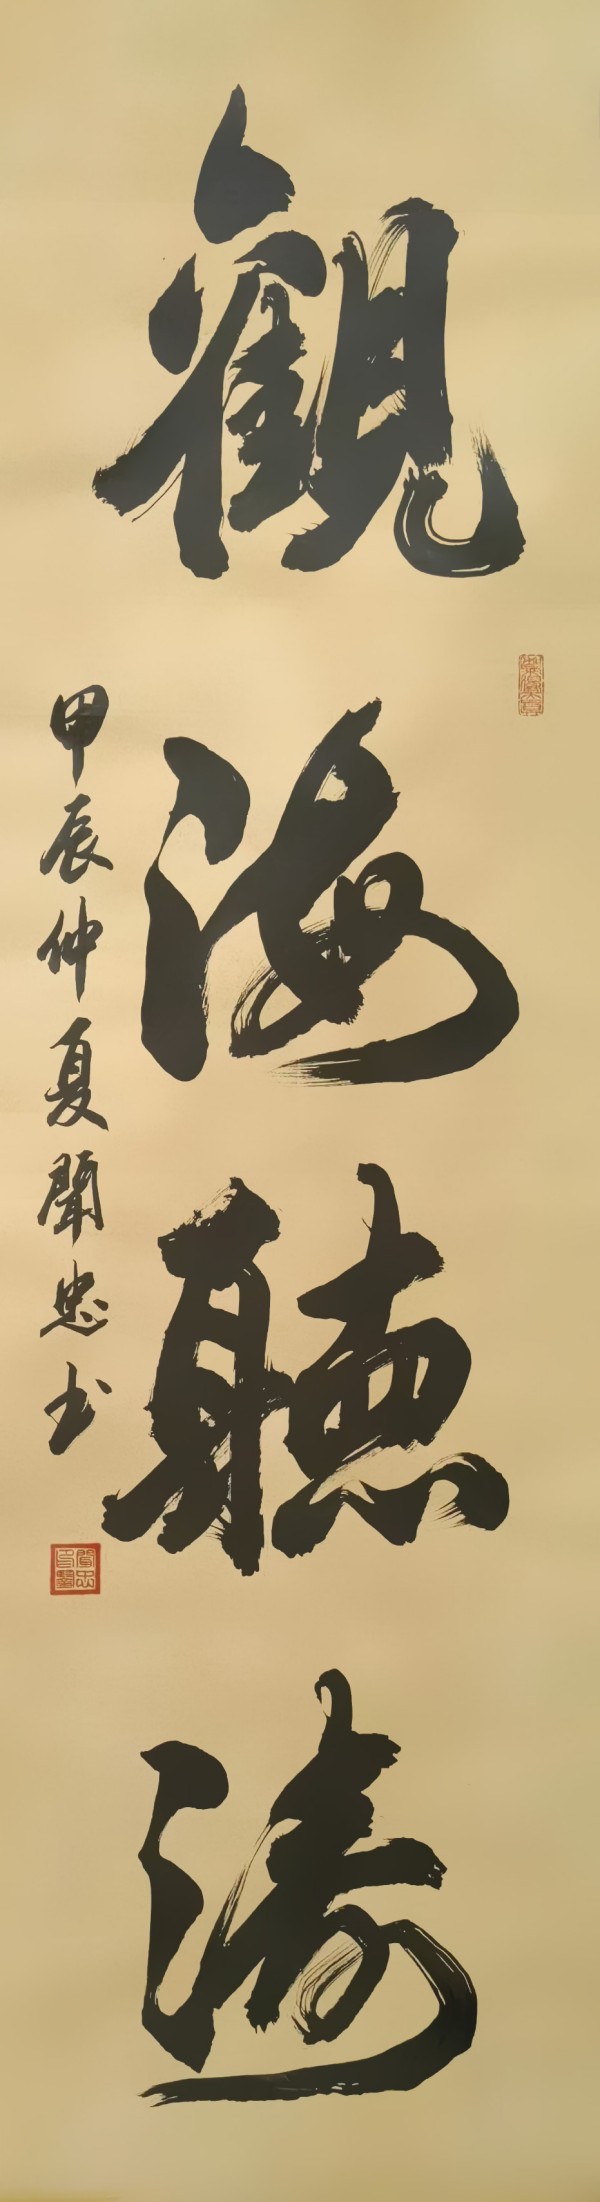 觀海聽濤
甲辰仲夏聞忠书